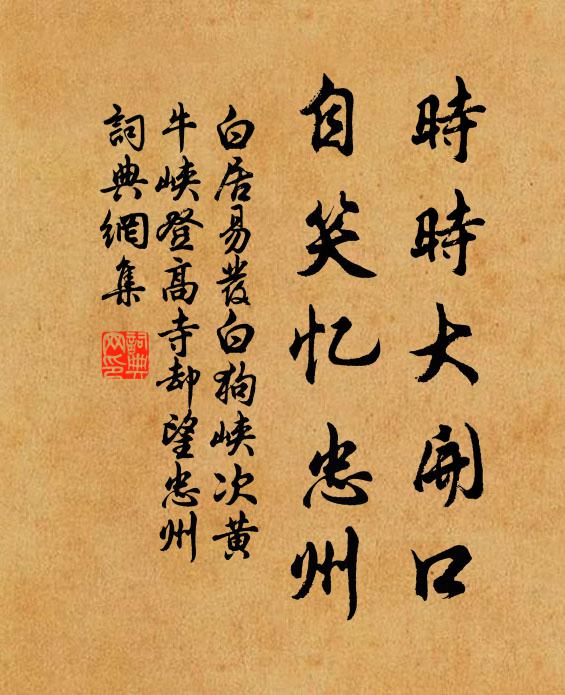 時時大開口
自笑忆忠州
白居易發白狗峽次黃
牛峽登高寺却望忠州
詞典網集
詞典网印